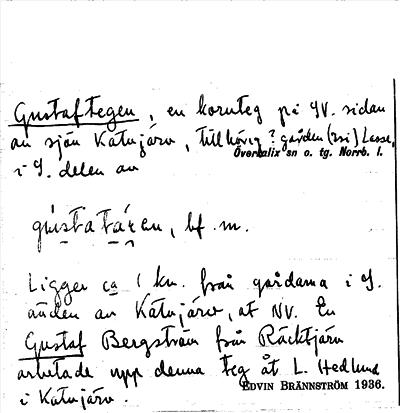 Gustaftegen, en kornteg på SV. sidan
av sjön Katujärv, tillhörig? gården (351) Lasse,
Överkalix sn o. tg. Norrb. l.
i S. delen av
gústatá̯ren, bf. m.
Ligger ca 1 km. från gårdarna i S.
änden av Katujärv, åt NV. En
Gustaf Bergström från Räcktjärv
arbetade upp denna teg åt L. Hedlund
EDVIN BRÄNNSTRÖM 1936.
i Katujärv.